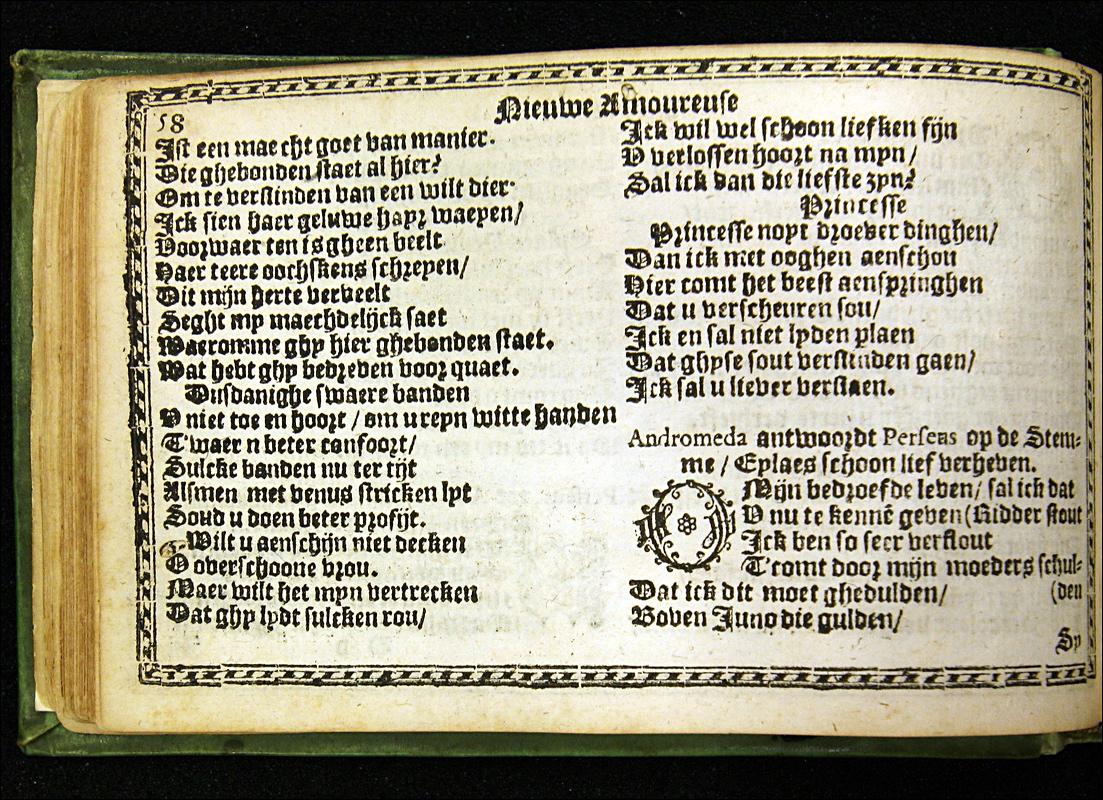 58
Nieuwe Amoureuse
Ist een mae cht goet van manier.
Die ghebonden staet al hier?
Om te verslinden van een wilt dier.
Ick sien haer geluwe hayr waeyen/
Voorwaer ten is gheen beelt
Haer teere oochskens schreyen/
Dit mijn herte verveelt
Seght my maechdelijck saet
Waeromme ghy hier ghebonden staet.
Wat hebt ghy bedreven voor quaet.
Dusdanighe swaere banden
V niet toe en hoort / om u reyn witte handen
T'waer n beter confoort/
Sulcke banden nu ter tijt
Alsmen met venus stricken lyt
Soud u doen beter profijt.
Wilt u aenschijn niet decken
O overschoone vrou.
Maer wilt het myn vertrecken
Dat ghy lydt sulcken rou/
Ick wil wel schoon liefken fijn
V verlossen hoort na myn/
Sal ick dan die liefste zyn?
Princesse
Princesse noyt droever dinghen/
Dan ick met ooghen aenschou
Hier comt het beest aenspringhen
Dat u verscheuren sou/
Ick en sal niet lyden plaen
Dat ghyse sout verslinden gaen/
Ick sal u liever verslaen.
Andromeda antwoordt Perseus op de Stem-
me / Eylaes schoon lief verheven.
Mijn bedroefde leven/ sal ick dat
V nu te kennē geven (Ridder stout
Ick ben so seer verflout
T'comt door mijn moeders schul-
Dat ick dit moet ghedulden/ (den
Boven Juno die gulden/
Sy